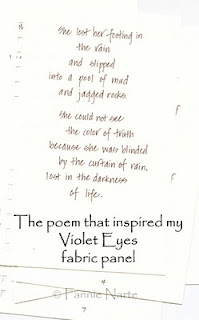 She lost her footing in
the rain
and slipped
into a pool of mud
and jagged rocks.
She could not see
the color of truth
because she was blinded
by the curtain of rain,
lost in the darkness
of life.
The poem that inspired my
Violet Eyes
fabric panel
© Fannie Narte